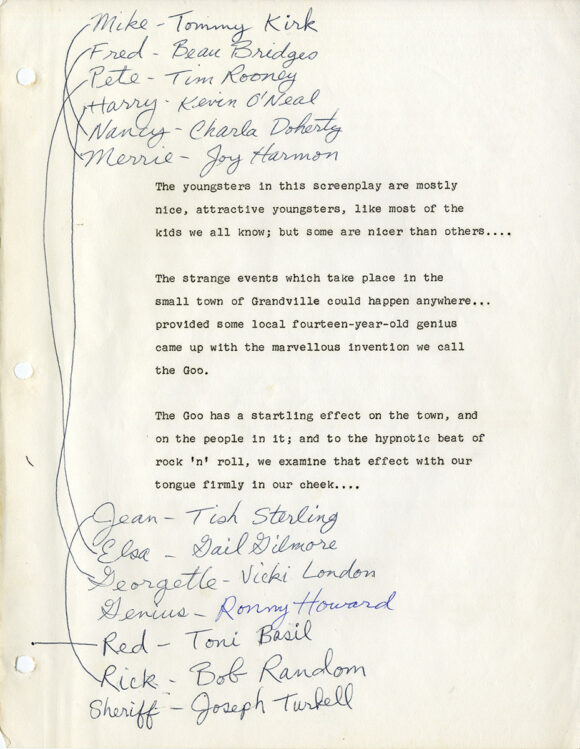 Mike - Tommy Kirk
Fred - Beau Bridges
Pete - Tim Rooney
Harry - Kevin O'Neal
Nancy - Charla Doherty
Merrie - Joy Harmon
The youngsters in this screenplay are mostly
nice, attractive youngsters, like most of the
kids we all know; but some are nicer than others....
The strange events which take place in the
small town of Grandville could happen anywhere...
provided some local fourteen-year-old genius
came up with the marvellous invention we call
the Goo.
The Goo has a startling effect on the town, and
on the people in it; and to the hypnotic beat of
rock 'n' roll, we examine that effect with our
tongue firmly in our cheek....
Jean - Tish Sterling
Elsa - Gail Gilmore
Georgette - Vicki London
Genius - Ronny Howard
Red - Toni Basil
Rick - Bob Random
Sheriff - Joseph Turkell